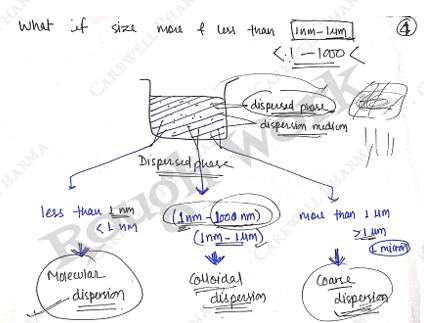 What if size more & less than 1nm-1μm
④
< .1 - 1000 <
dispersed phase
dispersion medium
Dispersed phase
less than 1 nm
< 1 nm
(1nm - 1000 nm)
(1nm - 1μm)
more than 1 μm
>1 μm
1 micron
Molecular
dispersion
Colloidal
dispersion
Coarse
dispersion
Rough work
CAREWELL PHARMA